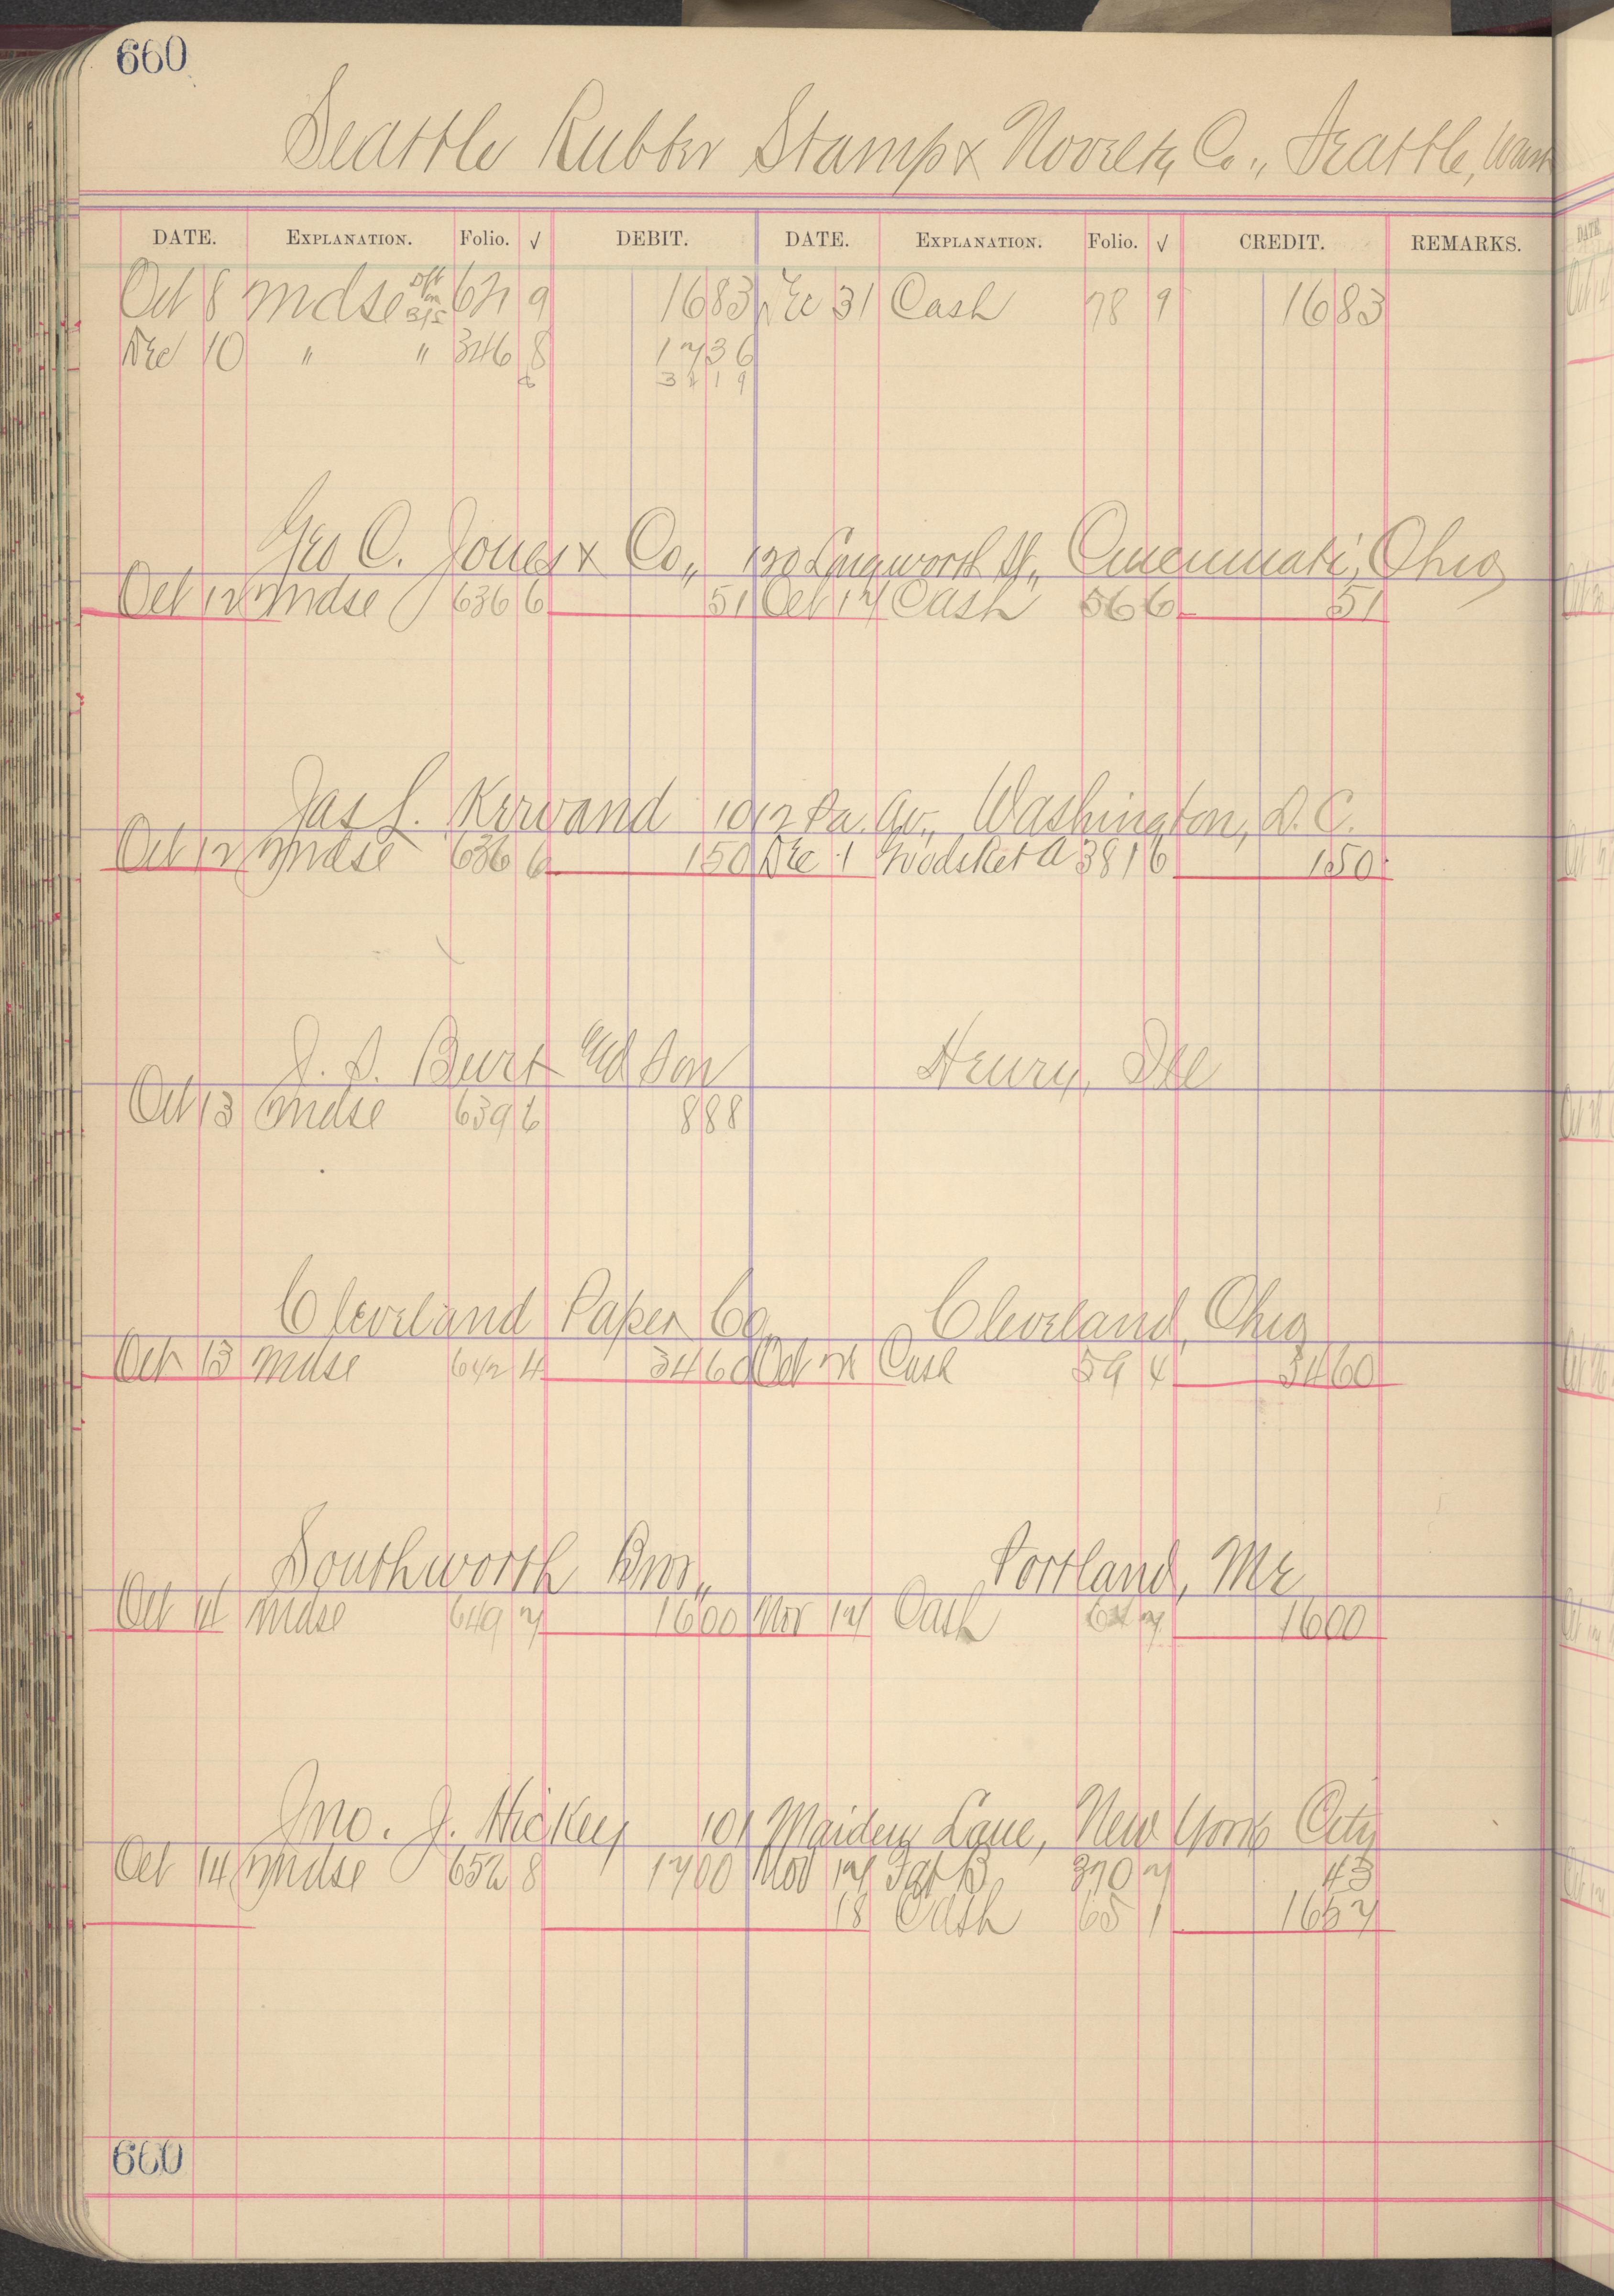 660
Seattle Rubber Stamp & Novelty Co., Seattle, Wash
DATE. EXPLANATION. Folio. √ DEBIT. DATE. EXPLANATION. Folio. √ CREDIT. REMARKS.
Oct 8 Mdse 9 16 83 Dec 31 Cash 78 9 16 83
Dec 10 " " 346 8 17 36
Geo C. Jones & Co., 130 Longworth St., Cincinnati, Ohio
Oct 12 Mdse 636 6 51 Oct 17 Cash 56 6 51
Jas L. Kervand 1012 Pa. Av., Washington, D. C.
Oct 12 Mdse 636 6 1 50 Dec 1 381 6 1 50
J. S. Burt and Son Henry, Ill
Oct 13 Mdse 639 6 8 88
Cleveland Paper Co, Cleveland, Ohio
Oct 13 Mdse 642 4 34 60 Oct Cash 59 4 34 60
Southworth Bros., Portland, Me
Oct 14 Mdse 649 7 16 00 Nov 17 Cash 64 7 16 00
Jno. J. Hickey 101 Maiden Lane, New York City
Oct 14 Mdse 652 8 17 00 Nov 17 370 7 43
18 Cash 65 1 16 57
660